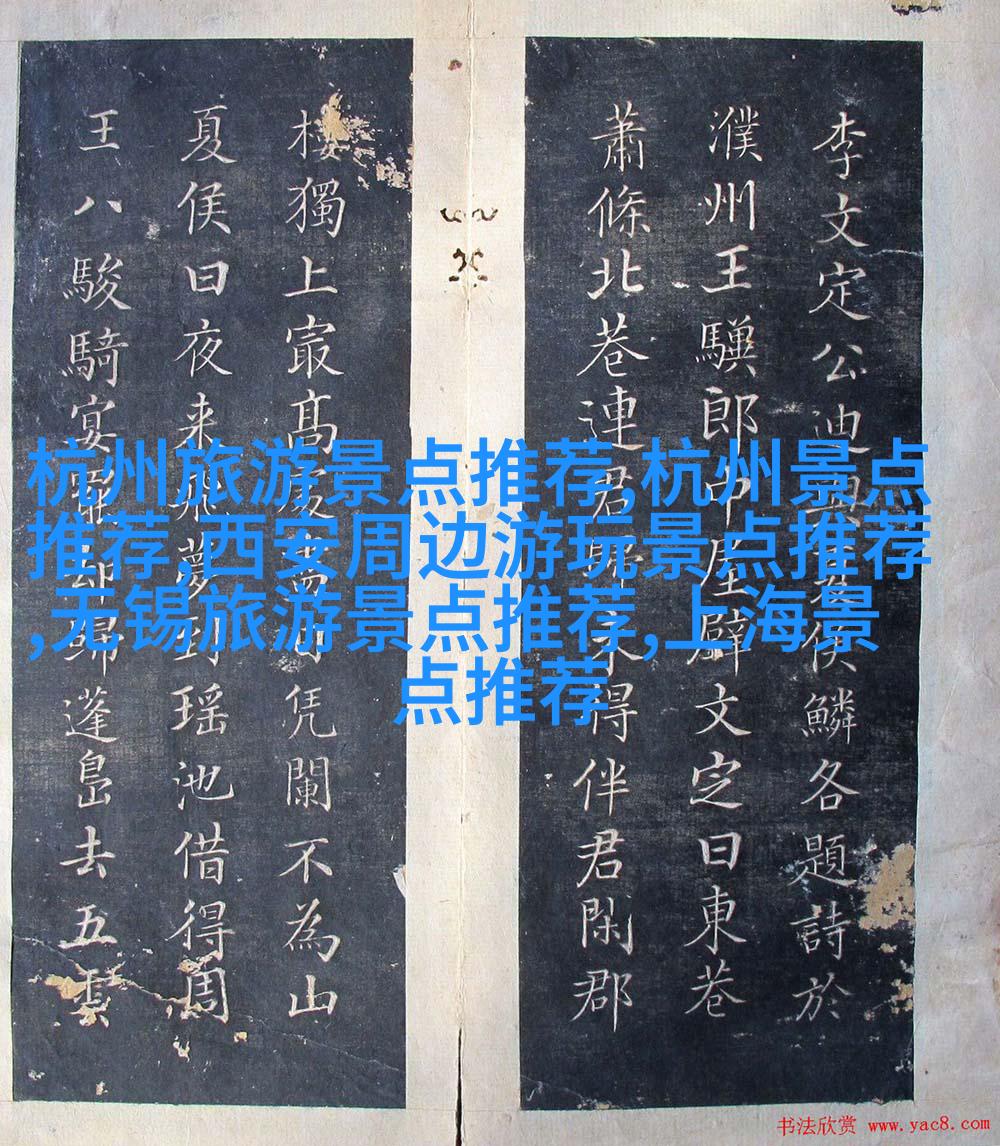 李文定公迪夏侯鱗各題詩於
濮州王驥郎中屋壁文定曰東巷
蕭條北巷連君得伴君閑郡
樓獨上㝡髙處凭闌不為山
夏侯曰夜来飛夢到瑶池借得周
王八駿騎宴罷却歸蓬島去五雲
杭州旅游景点推荐,杭州景点
推荐,西安周边游玩景点推荐
,无锡旅游景点推荐,上海景
点推荐
书法欣赏 www.yac8.com